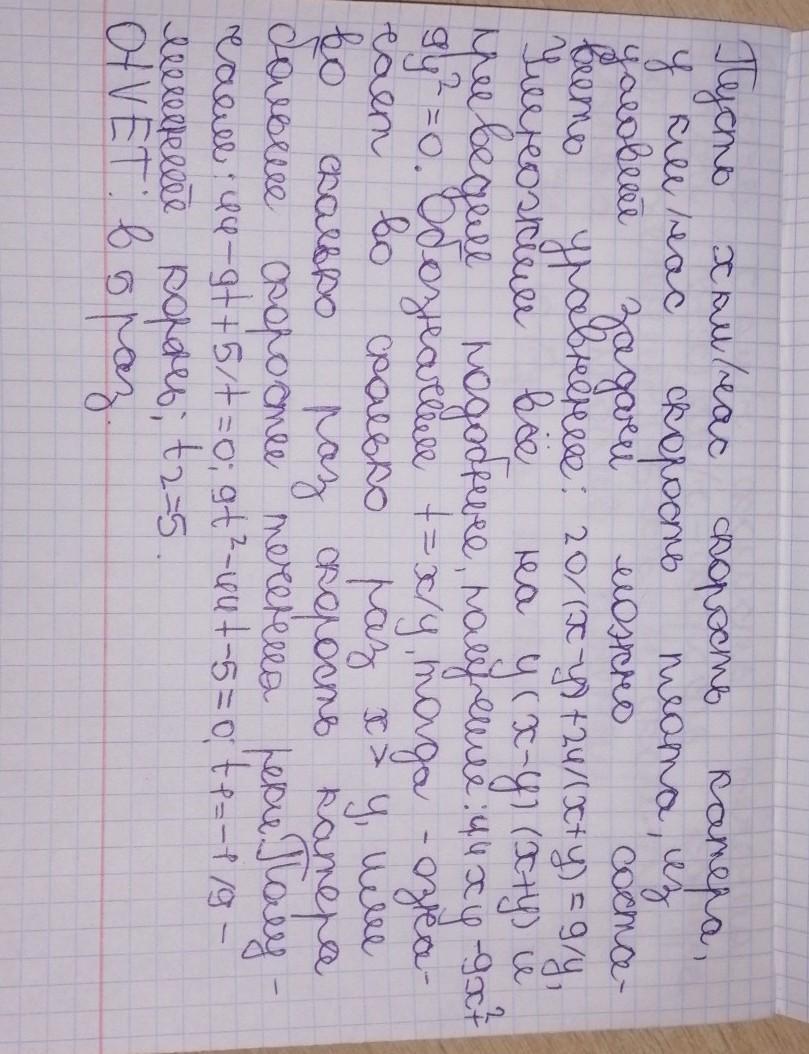 Пусть х км/час скорость катера,
у км/час скорость плота, из
условий задачи можно соста-
вить уравнение: 20/(x-y)+24/(x+y)=9/y,
Умножим всё на y(x-y)(x+y) и
приведем подобные, получим: 44xy-9x²+
9y²=0. Обозначим t=x/y, тогда - озна-
чает во сколько раз x>y, или
во сколько раз скорость катера
больше скорости течения реки. Полу-
чаем: 44-9t+5/t=0; 9t²-44t-5=0; t1=-1/9 -
лишний корень; t2=5.
OTVET: в 5 раз.